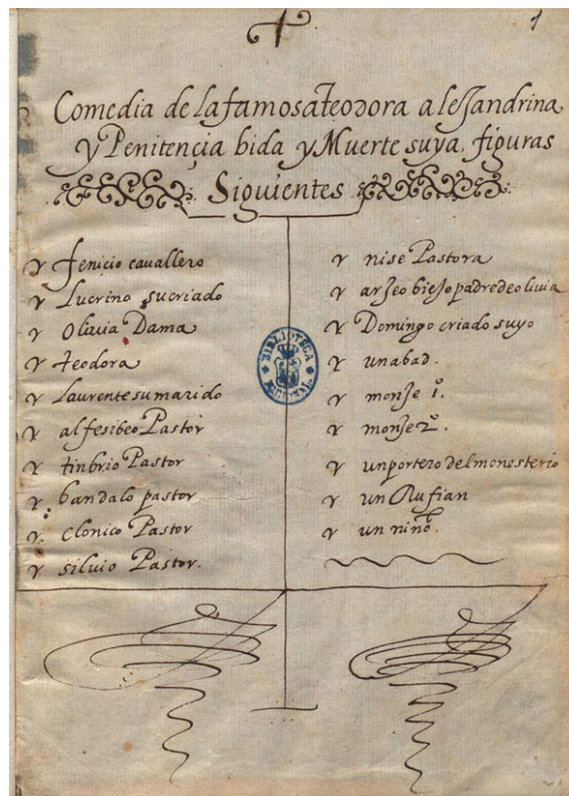 1
Comedia de la famosa teodora alessandrina
y Penitençia bida y Muerte suya. figuras
Siguientes
y fenicio cauallero
y Lucrino su criado
y Oliuia Dama
y teodora
y Laurente su marido
y alfesibeo Pastor
y tinbrio Pastor
y bandalo pastor
y clonico Pastor
y siluio Pastor.
y nise Pastora
y arseo biejo padre de oliuia
y Domingo criado suyo
y un abad.
y monje 1º.
y monje 2º.
y un portero del monesterio
y un Rufian
y un niño.
BIBLIOTECA
NACIONAL